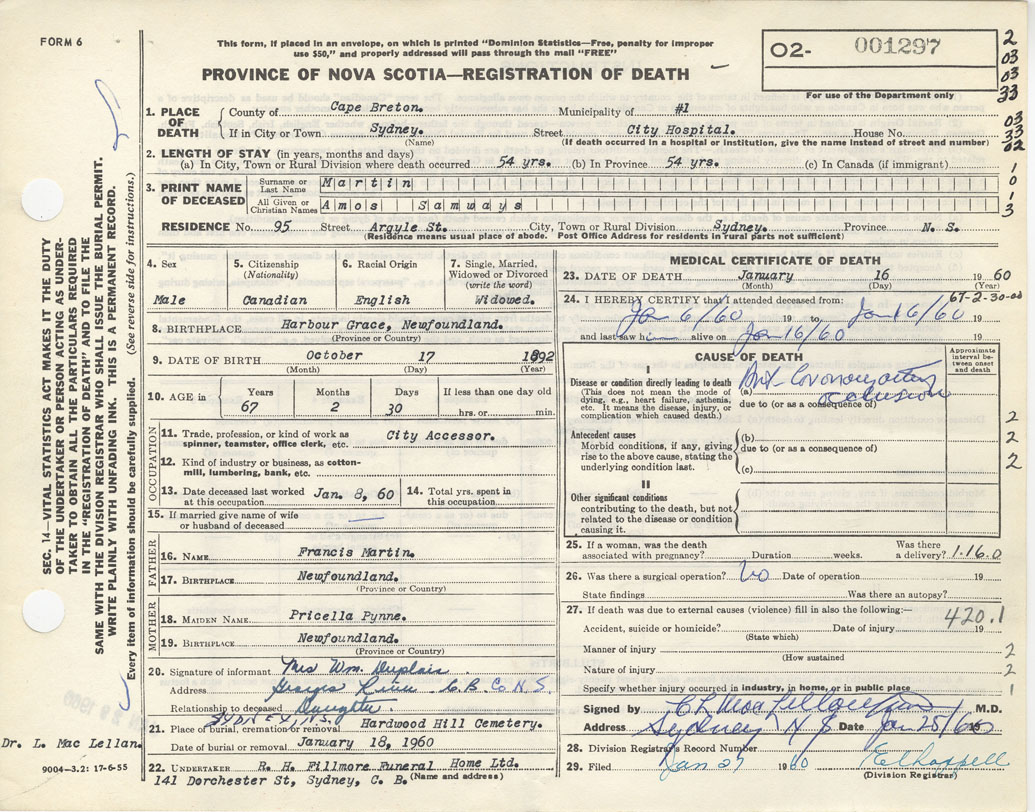 FORM 6
This form, if placed in an envelope, on which is printed "Dominion Statistics—Free, penalty for improper
use $50," and properly addressed will pass through the mail "FREE"
PROVINCE OF NOVA SCOTIA—REGISTRATION OF DEATH
O2- 001297
For use of the Department only
2
03
03
33
03
33
02
1
0
1
3
1. PLACE OF DEATH
County of Cape Breton. Municipality of #1
If in City or Town Sydney. Street City Hospital. House No.
(Name) (If death occurred in a hospital or institution, give the name instead of street and number)
2. LENGTH OF STAY (in years, months and days)
(a) In City, Town or Rural Division where death occurred 54 yrs. (b) In Province 54 yrs. (c) In Canada (if immigrant)
3. PRINT NAME OF DECEASED
Surname or Last Name Martin
All Given or Christian Names Amos Samways
RESIDENCE No. 95 Street Argyle St. City, Town or Rural Division Sydney. Province N. S.
(Residence means usual place of abode. Post Office Address for residents in rural parts not sufficient)
4. Sex
Male
5. Citizenship
(Nationality)
Canadian
6. Racial Origin
English
7. Single, Married,
Widowed or Divorced
(write the word)
Widowed.
8. BIRTHPLACE Harbour Grace, Newfoundland.
(Province or Country)
9. DATE OF BIRTH October 17 1892
(Month) (Day) (Year)
10. AGE in
Years Months Days If less than one day old
67 2 30 hrs. or min.
OCCUPATION
11. Trade, profession, or kind of work as
spinner, teamster, office clerk, etc. City Accessor.
12. Kind of industry or business, as cotton-
mill, lumbering, bank, etc.
13. Date deceased last worked
at this occupation Jan. 8, 60
14. Total yrs. spent in
this occupation
15. If married give name of wife
or husband of deceased —
FATHER
16. NAME Francis Martin.
17. BIRTHPLACE Newfoundland.
(Province or Country)
MOTHER
18. MAIDEN NAME Pricella Pynne.
19. BIRTHPLACE Newfoundland.
(Province or Country)
20. Signature of informant Mrs Wm. Duplais
Address Georges River C.B. Co N.S.
Relationship to deceased Daughter.
SYDNEY, N.S.
21. Place of burial, cremation or removal Hardwood Hill Cemetery.
Date of burial or removal January 18, 1960
22. UNDERTAKER R. H. Fillmore Funeral Home Ltd.
141 Dorchester St, Sydney, C. B. (Name and address)
MEDICAL CERTIFICATE OF DEATH
23. DATE OF DEATH January 16 1960
(Month) (Day) (Year)
67-2-30-00
24. I HEREBY CERTIFY that I attended deceased from:
Jan 6/60 19 to Jan 16/60 19
and last saw h alive on Jan 16/60 19
CAUSE OF DEATH
Approximate interval between onset and death
I
Disease or condition directly leading to death
(This does not mean the mode of
dying, e.g., heart failure, asthenia,
etc. It means the disease, injury, or
complication which caused death.)
(a) Ant. Coronary artery
occlusion
due to (or as a consequence of)
Antecedent causes
Morbid conditions, if any, giving
rise to the above cause, stating the
underlying condition last.
(b)
due to (or as a consequence of)
(c)
2
2
2
II
Other significant conditions
contributing to the death, but not
related to the disease or condition
causing it.
25. If a woman, was the death
associated with pregnancy? Duration weeks. Was there a delivery? 1.16.0
26. Was there a surgical operation? No Date of operation 19
State findings Was there an autopsy?
27. If death was due to external causes (violence) fill in also the following:—
420.1
Accident, suicide or homicide? Date of injury 19
(State which)
Manner of injury 2
(How sustained
Nature of injury 2
Specify whether injury occurred in industry, in home, or in public place 1
Signed by M.D.
Address Sydney N S Date Jan 25/60
28. Division Registrar's Record Number
29. Filed Jan 27 1960
(Division Registrar)
SEC. 14—VITAL STATISTICS ACT MAKES IT THE DUTY
OF THE UNDERTAKER OR PERSON ACTING AS UNDER-
TAKER TO OBTAIN ALL THE PARTICULARS REQUIRED
IN THE "REGISTRATION OF DEATH" AND TO FILE THE
SAME WITH THE DIVISION REGISTRAR WHO SHALL ISSUE THE BURIAL PERMIT.
WRITE PLAINLY WITH UNFADING INK. THIS IS A PERMANENT RECORD.
Every item of information should be carefully supplied. (See reverse side for instructions.)
Dr. L. Mac Lellan.
9004-3.2: 17-6-55